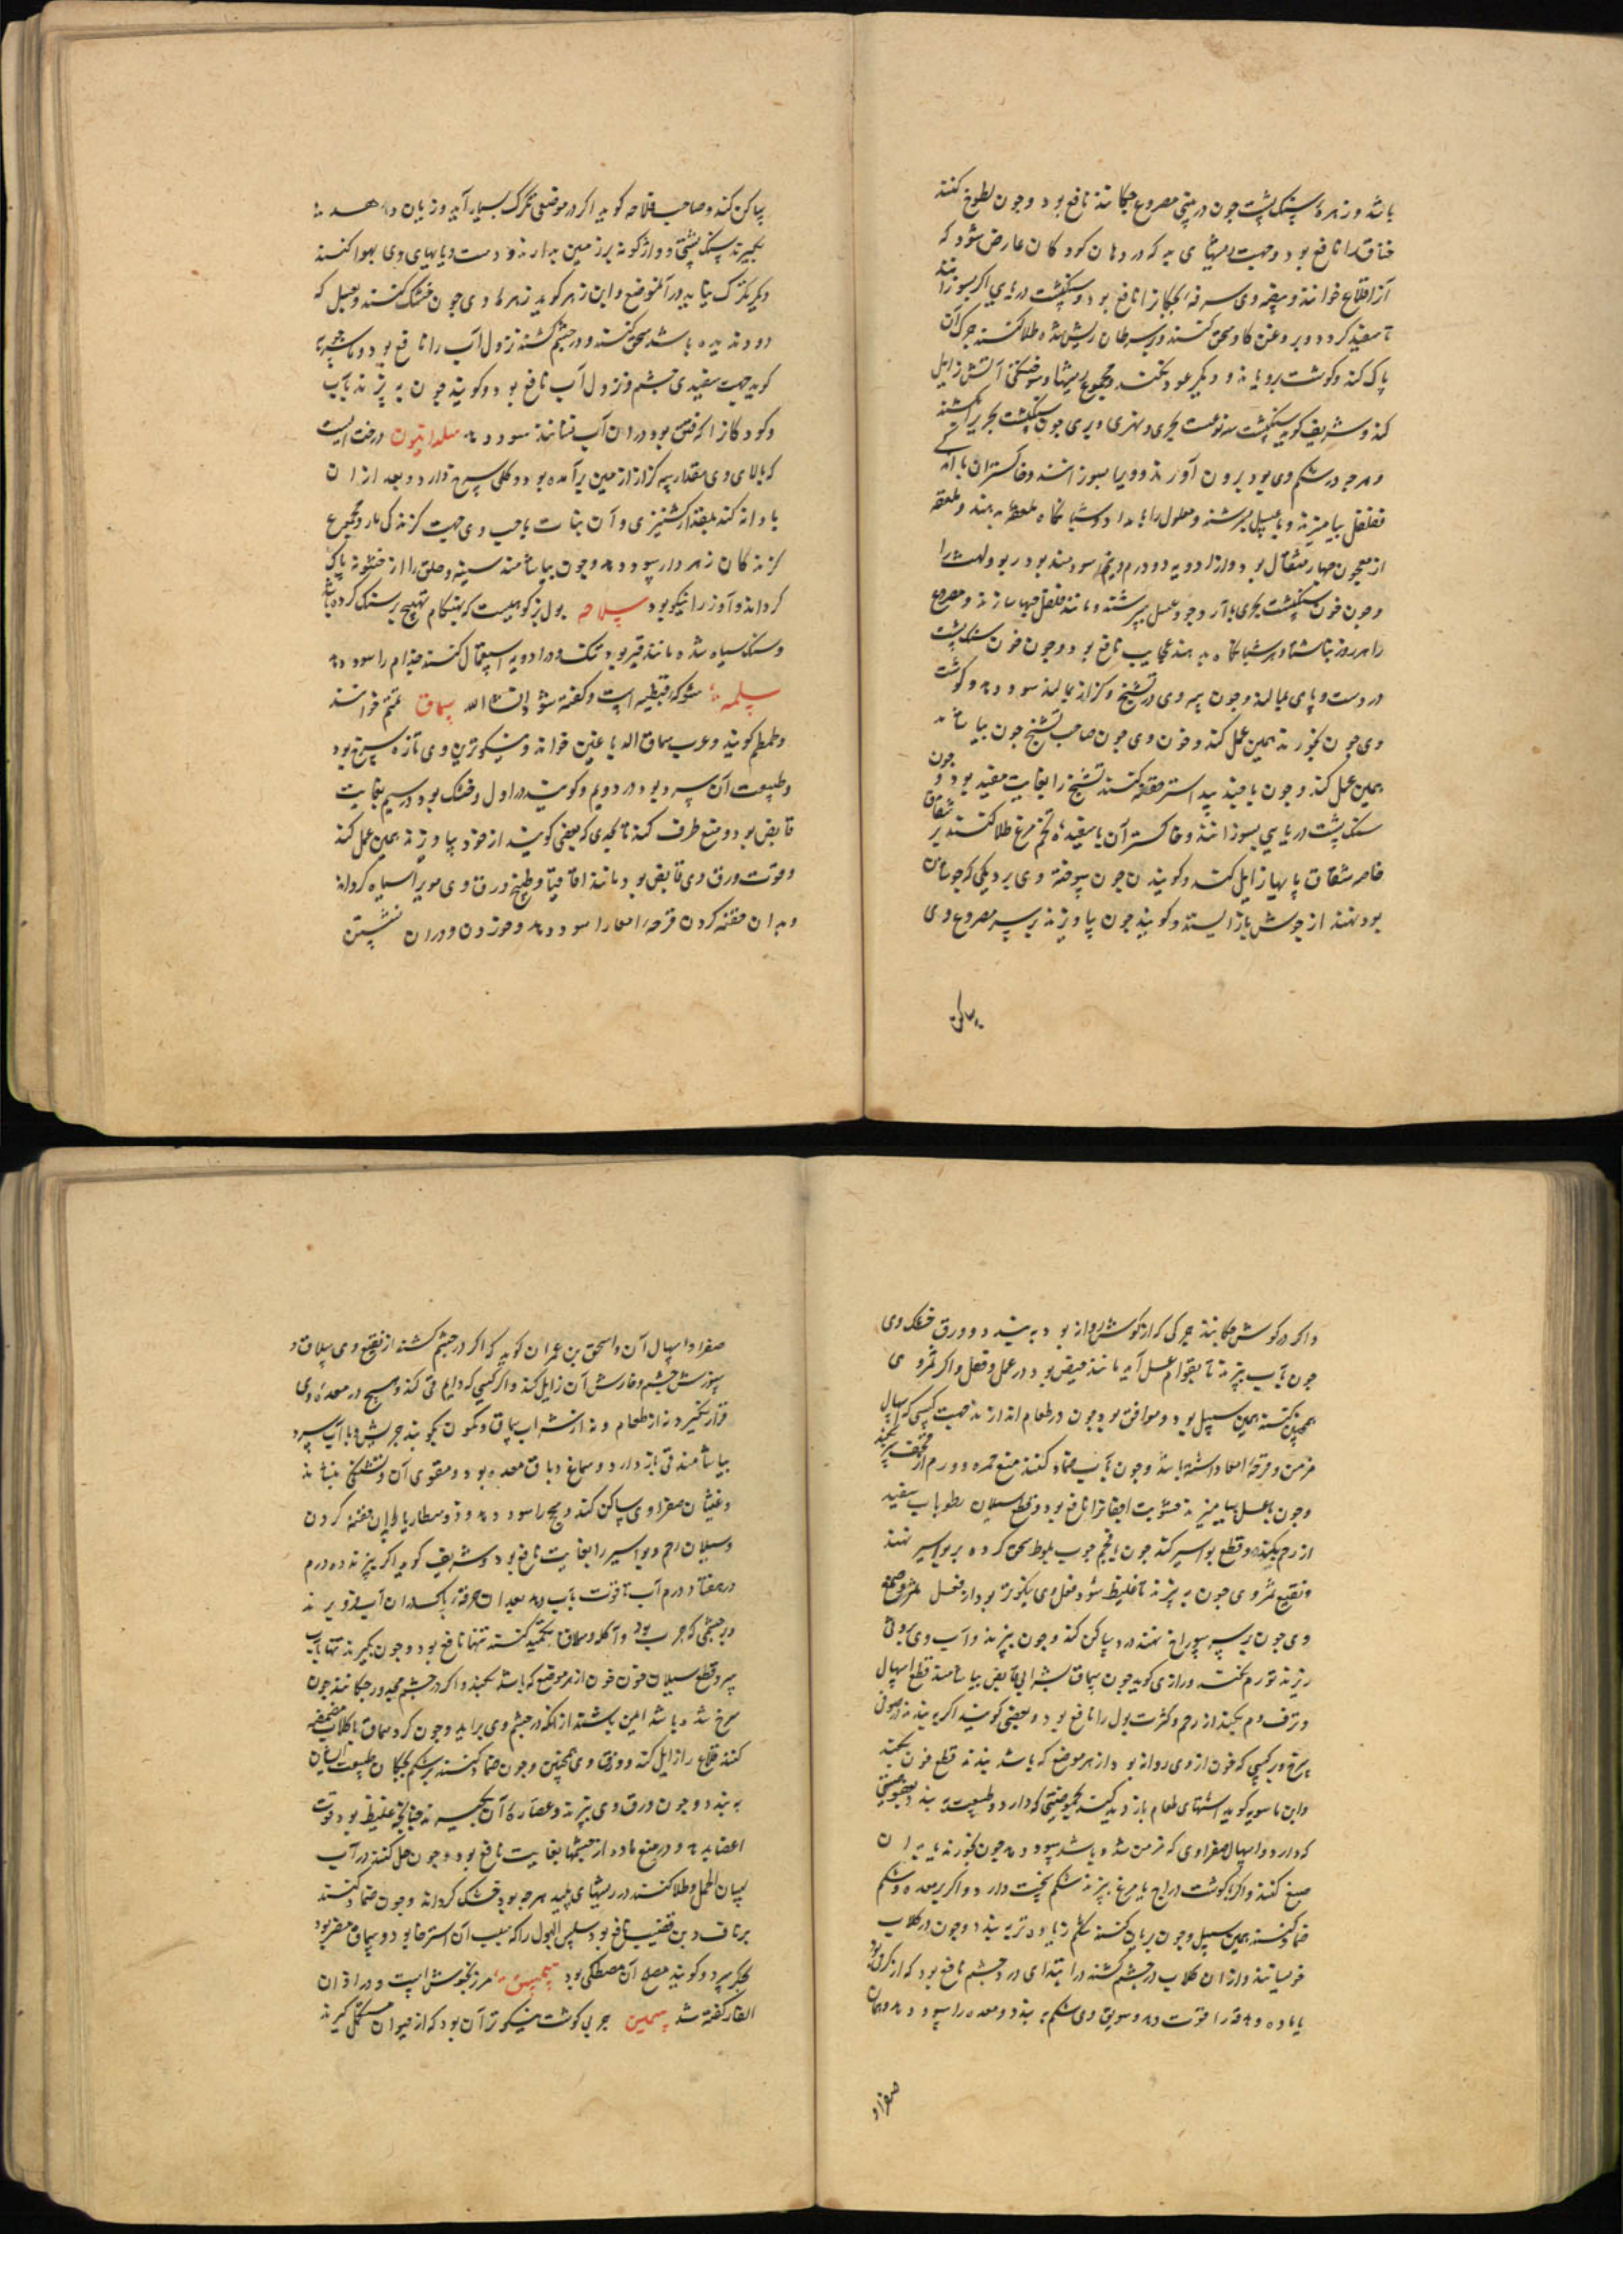 باشد و زهرهٔ سنک پشت چون در بینی مصروع چکانند نافع بود و چون لطوخ کنند
خناق را نافع بود و جهت ریشهای بد که در دهان کودکان عارض شود که
آنرا قلاع خوانند و بیضه وی سرفهٔ کودکانرا نافع بود و سنکپشت دریایی اکر بسوزانند
تا سفید کردد و بروغن کاو سحق کنند و بر سرطان ریش شده طلا کنند چرک آن
پاک کند و کوشت برویاند و دیکر عود نکند و مجموع ریشها و سوختکی آتش زایل
کند و شریف کوید سنکپشت سه نوعست بحری و نهری و بری چون سنکپشت بحری بکشند
و هر چه در شکم وی بود برون آورند و ویرا بسوزانند و خاکستر آن با اندکی
فلفل بیامیزند و با عسل بسرشند و مسلول را بامداد و شبانکاه ملعقه بدهند و ملعقه
از معجون چهار مثقال بود و از ادویه دو درم و نیم سودمند بود ربو و لهث را
و چون خون سنکپشت بحری با آرد جو و عسل بسرشند و مانند فلفل حبها سازند و مصروع
را هر روز ناشتا و هر شبانکاه بدهند عجایب نافع بود و چون خون سنک پشت
در دست و پای بمالند و چون پیه وی در تشنج و کزاز بمالند سود دهد و کوشت
وی چون بخورند همین عمل کند و خون وی چون صاحب تشنج چون بیاشامد
همین عمل کند و چون با جند بیدستر حقنه کنند تشنج را بغایت مفید بود و چون
سنک پشت دریایی بسوزانند و خاکستر آن با سفیدهٔ تخم مرغ طلا کنند بر شقاق
خاصه شقاق پایها زایل کند و کویند چون سوخته وی بر دیکی که جوشان
بود نهند از جوش باز ایستد و کویند چون بیاویزند بر سر مصروع وی
ساکن
ساکن کند و صاحب فلاحه کوید اکر در موضعی تکرک بسیار آید و زیان دهد
بکیرند سنک پشتی و واژکونه بر زمین بدارند و دست و پایهای وی بهوا کنند
دیکر تکرک نیاید در آنموضع و ابن زهر کوید زهرهٔ وی چون خشک کنند و بعسل که
دود ندیده باشد سحق کنند و در چشم کشند نزول آب را نافع بود و
کوید جهت سفیدی چشم و نزول آب نافع بود و کویند چون بپزند بآب
و کودکانرا که فتق بود در آن آب نشانند سود دهد سلدانیون درختیست
که بالای وی مقدار سه کز از زمین برآمده بود و کلی سرخ دارد و بعد از آن
با دانه کند بمقدار کشنیزی و آن نبات با حب وی جهت کزندکی مار و مجموع
کزندکان زهردار سود دهد و چون بیاشامند سینه و حلق را از خشونت پاک
کرداند و آواز را نیکو بود سلاحه بول بز کوهیست که بهنکام تهییج بر سنک کرده باشد
و سنک سیاه شده مانند قیر بود تنک و در ادویه استعمال کنند جذام را سود دهد
سلمه شوکه قبطیه است و کفته شود انشاءالله سماق تمتم خوانند
و طمطم کویند و عرب سماق الدباغین خوانند و نیکوترین وی تازه سرخ بود
و طبیعت آن سرد بود در دویم و کویند در اول و خشک بود در سیم بغایت
قابض بود و منع طرف کند تا بحدی که بعضی کویند از خود بیاویزند همین عمل کند
و قوت ورق وی قابض بود مانند اقاقیا و طبیخ ورق وی موی را سیاه کرداند
و بدان حقنه کردن قرحهٔ امعا را سود دهد و خوردن و در آن نشستن
و اکر در کوش چکانند چرکی که از کوش روانه بود ببندد و ورق خشک وی
چون بآب بپزند تا بقوام عسل آید مانند حضض بود در عمل و فعل و اکر ثمر وی
همچنین کنند همین سبیل بود و موافق بود چون در طعام اندازند جهت کسی که اسهال
مزمن و قرحهٔ امعا داشته باشد و چون بآب ضماد کنند منع حمره و ورم از قحف سر بکند
و چون با عسل بیامیزند خشونت اجفانرا نافع بود و قطع سیلان رطوبات سفید
از رحم بکند و قطع بواسیر کند چون با فحم چوب بلوط سحق کرده بر بواسیر نهند
و نقیع ثمر وی چون بپزند تا غلیظ شود فعل وی نیکوتر بود از فعل ثمر و صمغ
وی چون بر سر سوراخ نهند درد ساکن کند و چون بپزند و آب وی بر وثی
ریزند تورم نکند و رازی کوید چون سماق بشرابی قابض بیاشامند قطع اسهال
و نزف دم بکند از رحم و کثرت بول را نافع بود و بعضی کویند اکر ببندند در صوفی
سرخ و بر کسی که خون از وی روانه بود از هر موضع که باشد بندند قطع خون بکند
و ابن ماسویه کوید اشتهای طعام باز دید کند بحموضتی که دارد و طبیعت ببندد بعفوصتی
که دارد و اسهال صفراوی که مزمن شده باشد سود دهد چون بخورند یا بدان
صبغ کنند و اکر با کوشت دراج یا مرغ بپزند شکم سخت دارد و اکر بر معده و شکم
ضماد کنند همین سبیل و چون بریان کنند شکم زیادتر ببندد و چون در کلاب
خوسانند و از آن کلاب در چشم کشند در ابتدای درد چشم نافع بود که از کرمی بود
با ماده و حدقه را قوت دهد و سویق وی شکم ببندد و معده را سود دهد و همان
صفرا و
صفرا و اسهال آن و اسحق بن عمران کوید که اکر در چشم کشند از نقیع وی سلاق و
سوزش چشم و خارش آن زایل کند و اکر کسی که دایم قی کند و هیچ در معدهٔ وی
قرار نکیرد نه از طعام و نه از شراب سماق و کمون بکوبند جریش و با آب سرد
بیاشامند قی باز دارد و سماغ دباق معده بود و مقوی آن و تشنکی بنشاند
و غثیان صفراوی ساکن کند و سحج را سود دهد و ذوسنطاریا بدان حقنه کردن
و سیلان رحم و بواسیر را بغایت نافع بود و شریف کوید اکر بپزند ده درم
در هفتاد درم آب تا قوت بآب دهد بعد از آن خرقهٔ پاک در آن آب فرو برند
و بر چشمی که جرب بود و آکله و سلاق تکمید کنند تنها نافع بود و چون بکیرند تنها بآب
سرد قطع سیلان خون خون از هر موضع که باشد بکند و اکر در چشم مجدور چکانند چون
سرخ شده باشد ایمن باشند از آنکه در چشم وی برآید و چون کرد سماق با کلاب مضمضه
کنند قلاع را زایل کند و ورق وی همچنین و چون ضماد کنند بر شکم کودکان طبیعت ایشان
ببندد و چون ورق وی بپزند و عصارهٔ آن بکیرند چنانچه غلیظ بود قوت
اعضا بدهد و در منع ماده از چشمها بغایت نافع بود و چون حل کنند در آب
لسان الحمل و طلا کنند در ریشهای پلید هر جه بود خشک کرداند و چون ضماد کنند
بر ناف و بن قضیب نافع بود سلس البول را که سبب آن استرخا بود و سماق مضر بود
بجکر سرد و کویند مصلح آن مصطکی بود سمسق مرزنخوش است و در اذان
الفار کفته شد سمین چربی کوشت نیکوتر آن بود که از حیوان مکمل کیرند